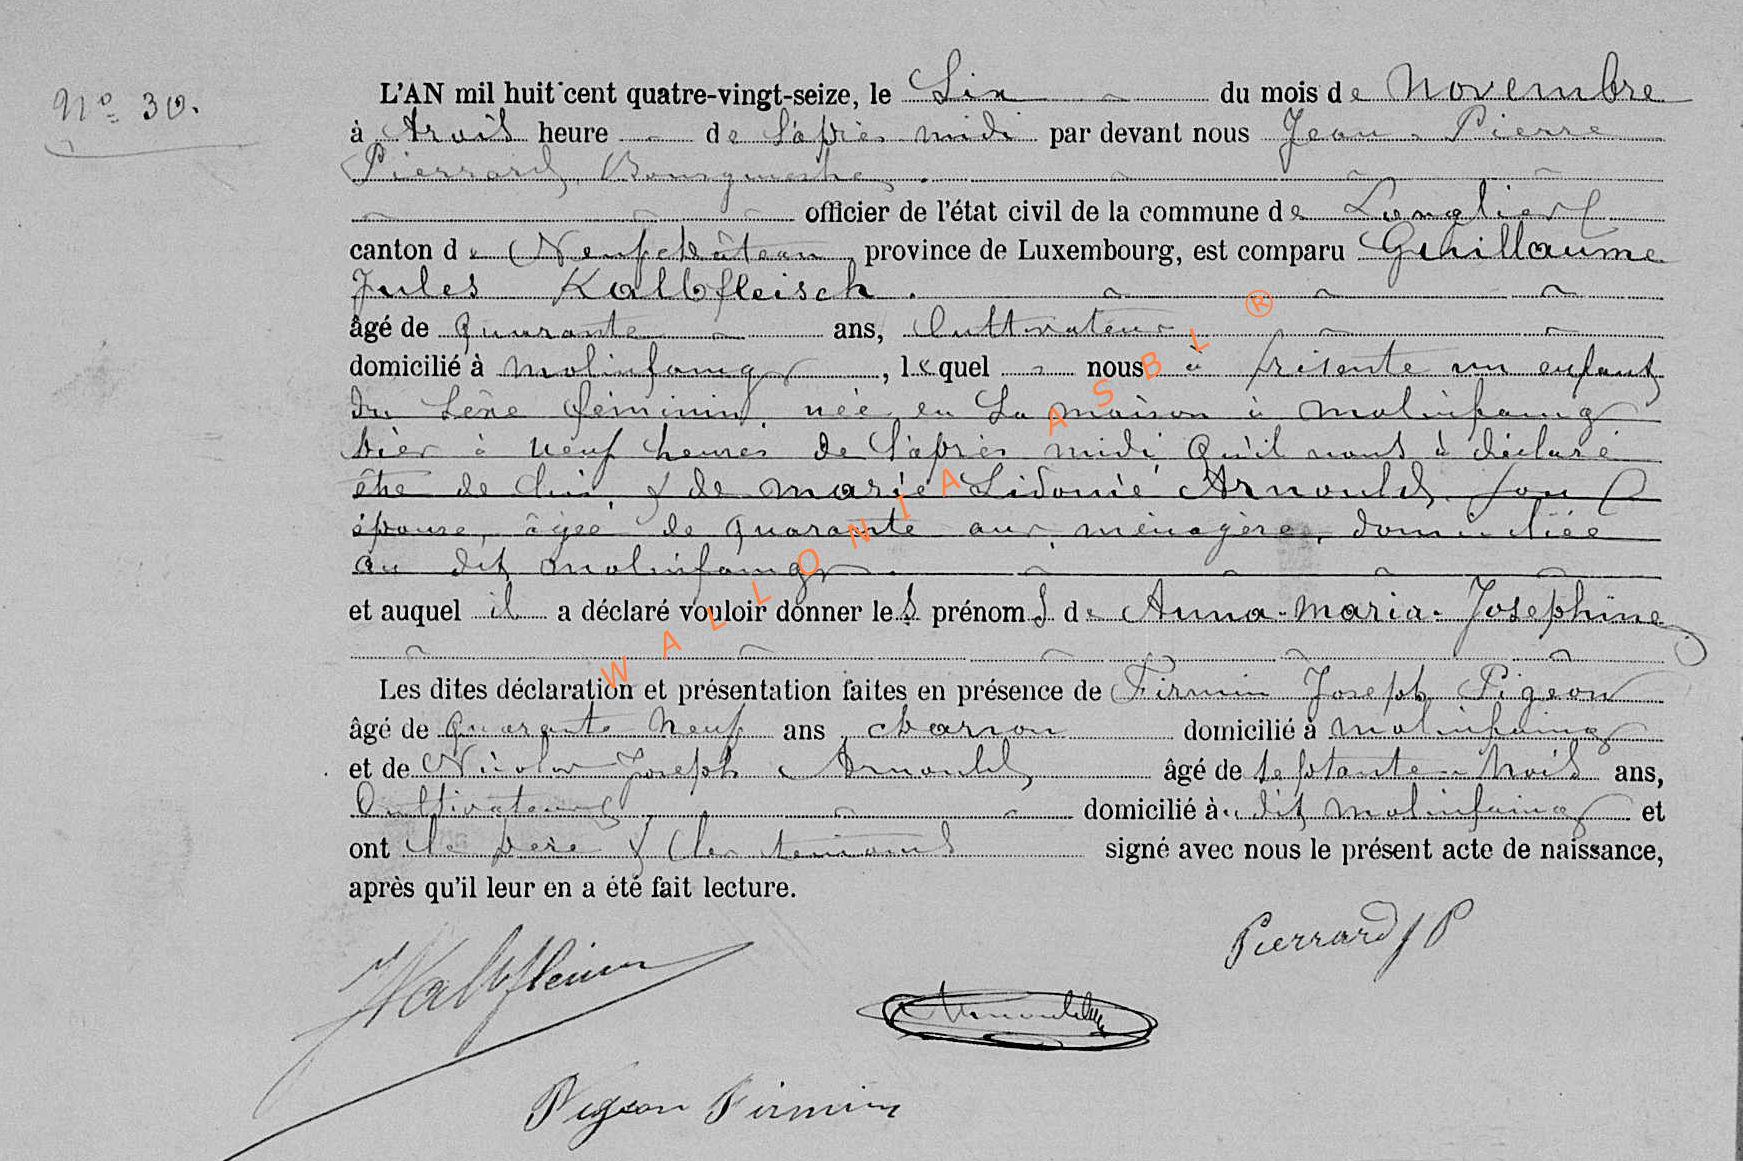 N° 30.
L'AN mil huit cent quatre-vingt-seize, le Six du mois de Novembre
à trois heure de l'après midi par devant nous Jean-Pierre
Pierrard, Bourgmestre
officier de l'état civil de la commune de Longlier
canton de Neufchâteau, province de Luxembourg, est comparu Guillaume
Jules Kalbfleisch.
âgé de quarante ans, Cultivateur
domicilié à Molinfaing, lequel nous à présenté un enfant
du sexe féminin née en Sa maison à Molinfaing
hier à neuf heures de l'après midi qu'il nous à déclaré
être de lui, & de Marie Sidonie Arnould son
épouse, âgée de quarante ans, ménagère, domiciliée
au dit Molinfaing.
et auquel il a déclaré vouloir donner les prénoms de Anna-Maria-Josephine
Les dites déclaration et présentation faites en présence de Firmin Joseph Pigeon
âgé de quarante neuf ans, charron domicilié à Molinfaing
et de Nicolas Joseph Arnould, âgé de septante-trois ans,
Cultivateur domicilié à dit Molinfaing et
ont le père & les témoins signé avec nous le présent acte de naissance,
après qu'il leur en a été fait lecture.
Pierrard JP
Kalbfleisch
Arnould
Pigeon Firmin
WALLONIA ASBL ®